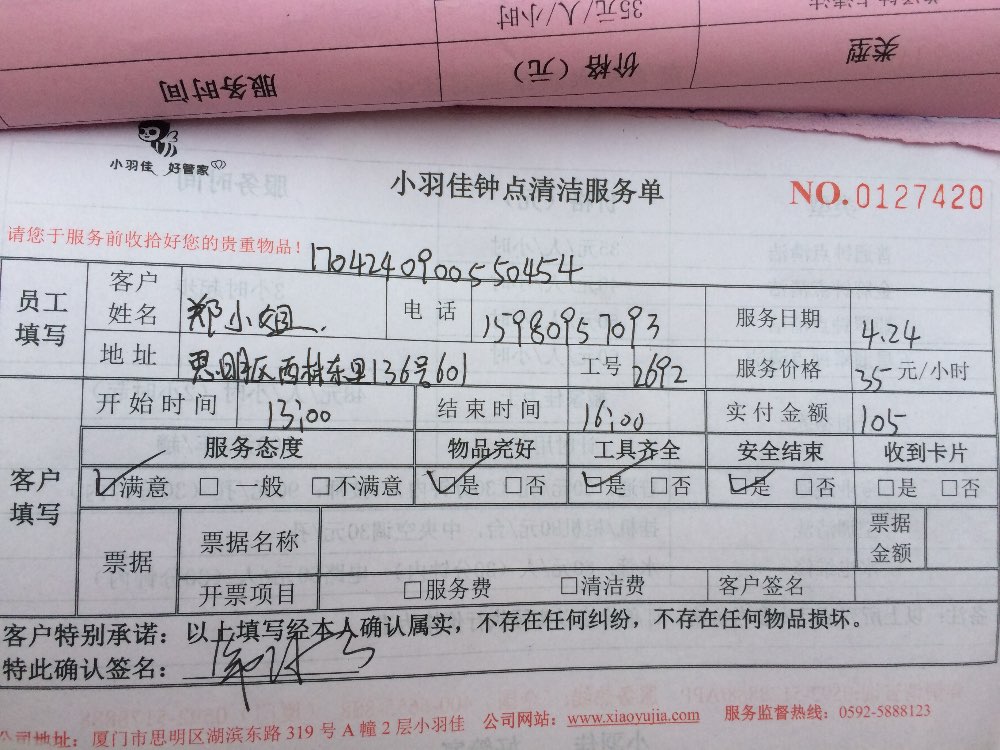 35元/人/小时
类型
价格（元）
服务时间
小羽佳 好管家
小羽佳钟点清洁服务单
NO.0127420
请您于服务前收拾好您的贵重物品！
1704240900550454
员工填写
客户姓名 郑小姐. 电话 15980957093 服务日期 4.24
地址 思明区西林东里136号601 工号 2692 服务价格 35元/小时
客户填写
开始时间 13:00 结束时间 16:00 实付金额 105
服务态度 物品完好 工具齐全 安全结束 收到卡片
☑满意 □一般 □不满意 ☑是 □否 ☑是 □否 ☑是 □否 □是 □否
票据 票据名称 票据金额
开票项目 □服务费 □清洁费 客户签名
客户特别承诺：以上填写经本人确认属实，不存在任何纠纷，不存在任何物品损坏.
特此确认签名：
公司地址：厦门市思明区湖滨东路 319 号 A 幢 2 层小羽佳 公司网站：www.xiaoyujia.com 服务监督热线：0592-5888123